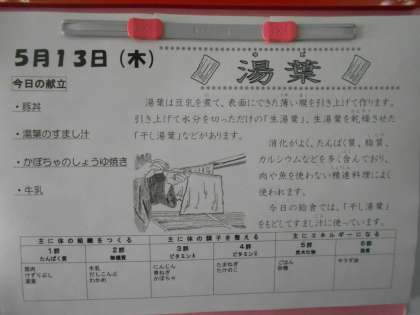 5月13日（木）
今日の献立
・豚丼
・湯葉のすまし汁
・かぼちゃのしょうゆ焼き
・牛乳
湯葉
湯葉は豆乳を煮て、表面にできた薄い膜を引き上げて作ります。
引き上げて水分を切っただけの「生湯葉」、生湯葉を乾燥させた
「干し湯葉」などがあります。
消化がよく、たんぱく質、脂質、
カルシウムなどを多く含んでおり、
肉や魚を使わない精進料理によく
使われます。
今日の給食では、「干し湯葉」
をもどしてすまし汁に使っています。
主に体の組織をつくる 主に体の調子を整える 主にエネルギーになる
1群 2群 3群 4群 5群 6群
たんぱく質 無機質 ビタミンA ビタミンC 炭水化物 脂質
豚肉 牛乳 にんじん たまねぎ ごはん サラダ油
けずりぶし だしこんぶ 青ねぎ たけのこ 砂糖
湯葉 わかめ かぼちゃ